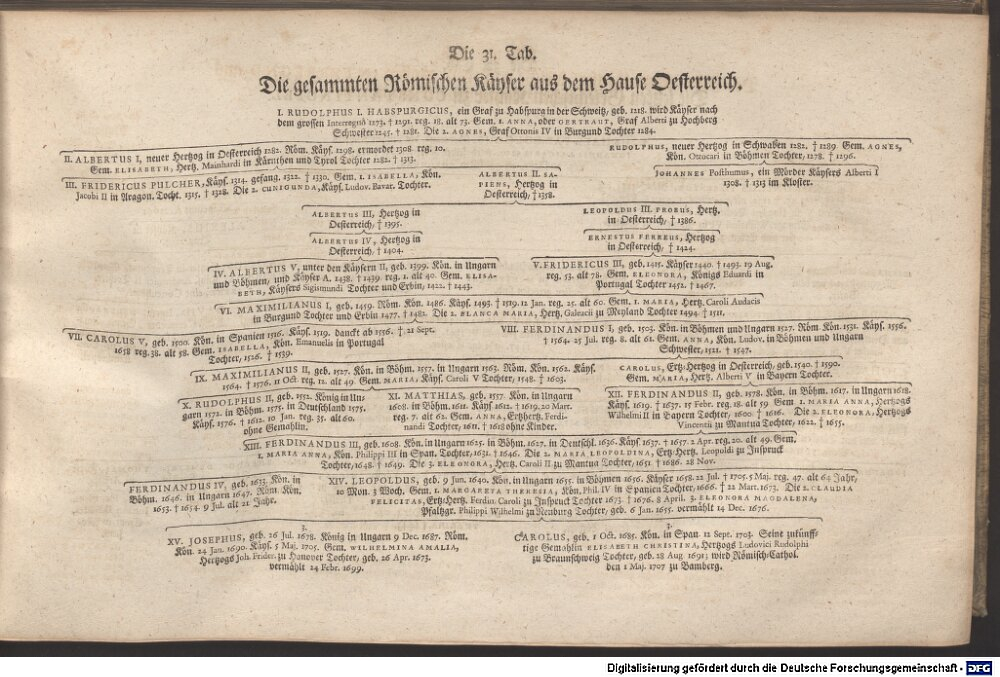 Die 31. Tab.
Die gesammten Römischen Käyser aus dem Hause Oesterreich.
I. RUDOLPHUS I. HABSPURGICUS, ein Graf zu Habspurg in der Schweitz, geb. 1218. wird Käyser nach
dem grossen Interregnô 1273. † 1291. reg. 18. alt 73. Gem. 1. ANNA, oder GERTRAUT, Graf Alberti zu Hochberg
Schwester 1245. † 1281. Die 2. AGNES, Graf Ottonis IV in Burgund Tochter 1284.
II. ALBERTUS I, neuer Hertzog in Oesterreich 1282. Röm. Käys. 1298. ermordet 1308. reg. 10.
Gem. ELISABETH, Hertz. Mainhardi in Kärnthen und Tyrol Tochter 1282. † 1313.
RUDOLPHUS, neuer Hertzog in Schwaben 1282. † 1289. Gem. AGNES,
Kön. Ottocari in Böhmen Tochter, 1278. † 1296.
III. FRIDERICUS PULCHER, Käys. 1314. gefang. 1322. † 1330. Gem. 1. ISABELLA, Kön.
Jacobi II in Aragon. Tocht. 1315. † 1318. Die 2. CUNIGUNDA, Käys. Ludov. Bavar. Tochter.
ALBERTUS II. SA-
PIENS, Hertzog in
Oesterreich, † 1358.
JOHANNES Posthumus, ein Mörder Käysers Alberti I
1308. † 1313 im Kloster.
ALBERTUS III, Hertzog in
Oesterreich, † 1395.
LEOPOLDUS III. PROBUS, Hertz.
in Oesterreich, † 1386.
ALBERTUS IV, Hertzog in
Oesterreich, † 1404.
ERNESTUS FERREUS, Hertzog
in Oesterreich, † 1424.
IV. ALBERTUS V, unter den Käysern II, geb. 1399. Kön. in Ungarn
und Böhmen, und Käyser A. 1438. † 1439. reg. 1. alt 40. Gem. ELISA-
BETH, Käysers Sigismundi Tochter und Erbin, 1422. † 1443.
V. FRIDERICUS III, geb. 1415. Käyser 1440. † 1493. 19 Aug.
reg. 53. alt 78. Gem. ELEONORA, Königs Eduardi in
Portugal Tochter 1452. † 1467.
VI. MAXIMILIANUS I, geb. 1459. Röm. Kön. 1486. Käys. 1493. † 1519. 12 Jan. reg. 25. alt 60. Gem. 1. MARIA, Hertz. Caroli Audacis
in Burgund Tochter und Erbin 1477. † 1482. Die 2. BLANCA MARIA, Hertz. Galeacii zu Meyland Tochter 1494. † 1511.
VII. CAROLUS V, geb. 1500. Kön. in Spanien 1516. Käys. 1519. danckt ab 1556. † 21 Sept.
1658 reg. 38. alt 58. Gem. ISABELLA, Kön. Emanuelis in Portugal
Tochter, 1526. † 1539.
VIII. FERDINANDUS I, geb. 1503. Kön. in Böhmen und Ungarn 1527. Röm. Kön. 1531. Käys. 1556.
† 1564. 25 Jul. reg. 8. alt 61. Gem. ANNA, Kön. Ludov. in Böhmen und Ungarn
Schwester, 1521. † 1547.
IX. MAXIMILIANUS II, geb. 1527. Kön. in Böhm. 1557. in Ungarn 1563. Röm. Kön. 1562. Käys.
1564. † 1576. 11 Oct. reg. 12. alt 49. Gem. MARIA, Käys. Caroli V Tochter, 1548. † 1603.
CAROLUS, Ertz-Hertzog in Oesterreich, geb. 1540. † 1590.
Gem. MARIA, Hertz. Alberti V in Bayern Tochter.
X. RUDOLPHUS II, geb. 1552. König in Un-
garn 1572. in Böhm. 1575. in Deutschland 1575.
Käys. 1576. † 1612. 10 Jan. reg. 35. alt 60.
ohne Gemahlin.
XI. MATTHIAS, geb. 1557. Kön. in Ungarn
1608. in Böhm. 1611. Käys. 1612. † 1619. 20 Mart.
reg. 7. alt 62. Gem. ANNA, Ertzhertz. Ferdi-
nandi Tochter, 1611. † 1618 ohne Kinder.
XII. FERDINANDUS II, geb. 1578. Kön. in Böhm. 1617. in Ungarn 1618.
Käys. 1619. † 1637. 15 Febr. reg. 18. alt 59 Gem. 1. MARIA ANNA, Hertzogs
Wilhelmi II in Bayern Tochter, 1600. † 1616. Die 2. ELEONORA, Hertzogs
Vincentii zu Mantua Tochter, 1622. † 1655.
XIII. FERDINANDUS III, geb. 1608. Kön. in Ungarn 1625. in Böhm. 1627. in Deutschl. 1636. Käys. 1637. † 1657. 2 Apr. reg. 20. alt 49. Gem.
1. MARIA ANNA, Kön. Philippi III in Span. Tochter, 1631. † 1646. Die 2. MARIA LEOPOLDINA, Ertz-Hertz. Leopoldi zu Jnspruck
Tochter, 1648. † 1649. Die 3. ELEONORA, Hertz. Caroli II zu Mantua Tochter, 1651 † 1686. 28 Nov.
FERDINANDUS IV, geb. 1633. Kön. in
Böhm. 1646. in Ungarn 1647. Röm. Kön.
1653. † 1654. 9 Jul. alt 21 Jahr.
XIV. LEOPOLDUS, geb. 9 Jun. 1640. Kön. in Ungarn 1655. in Böhmen 1656. Käyser 1658. 22 Jul. † 1705. 5 Maj. reg. 47. alt 64 Jahr,
10 Mon. 3 Woch. Gem. 1. MARGARETA THERESIA, Kön. Phil. IV in Spanien Tochter, 1666. † 22 Mart. 1673. Die 2. CLAUDIA
FELICITAS, Ertz-Hertz. Ferdin. Caroli zu Jnspruck Tochter 1673. † 1676. 8 April. 3. ELEONORA MAGDALENA,
Pfaltzgr. Philippi Wilhelmi zu Neuburg Tochter, geb. 6 Jan. 1655. vermählt 14 Dec. 1676.
3.
XV. JOSEPHUS, geb. 26 Jul. 1678. König in Ungarn 9 Dec. 1687. Röm.
Kön. 24 Jan. 1690. Käys. 5 Maj. 1705. Gem. WILHELMINA AMALIA,
Hertzogs Joh. Frider. zu Honover Tochter, geb. 26 Apr. 1673.
vermählt 24 Febr. 1699.
3.
CAROLUS, geb. 1 Oct. 1685. Kön. in Span. 12 Sept. 1703. Seine zukünff-
tige Gemahlin ELISABETH CHRISTINA, Hertzogs Ludovici Rudolphi
zu Braunschweig Tochter, geb. 28 Aug. 1691; wird Römisch-Cathol.
den 1 Maj. 1707 zu Bamberg.
Digitalisierung gefördert durch die Deutsche Forschungsgemeinschaft - DFG